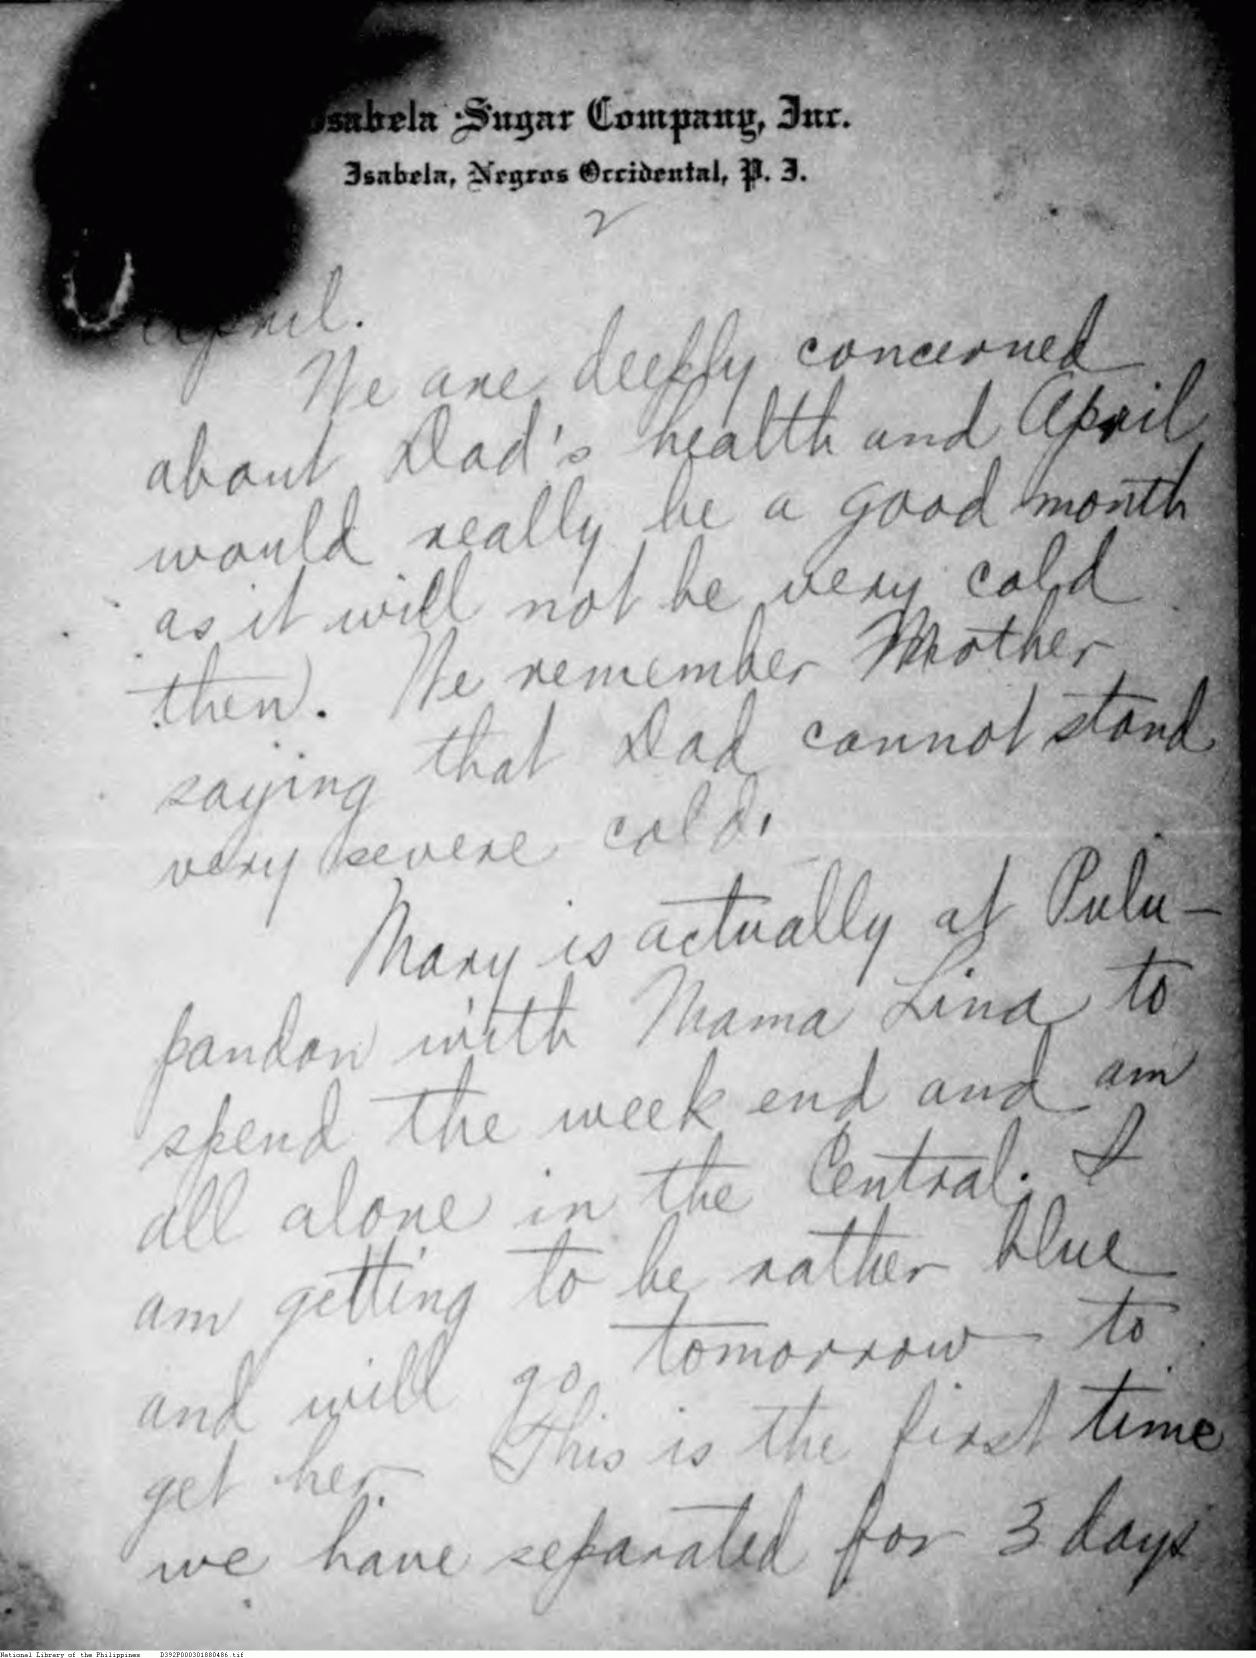 Isabela Sugar Company, Inc.
Isabela, Negros Occidental, P. I.
2
April.
We are deeply concerned
about Dad's health and April
would really be a good month
as it will not be very cold
then. We remember Mother
saying that Dad cannot stand
very severe cold.
Mary is actually at Pulu-
pandan with Mama Lina to
spend the week end and am
all alone in the Central. I
am getting to be rather blue
and will go tomorrow to
get her. This is the first time
we have separated for 3 days
National Library of the Philippines D392P000301880486.tif